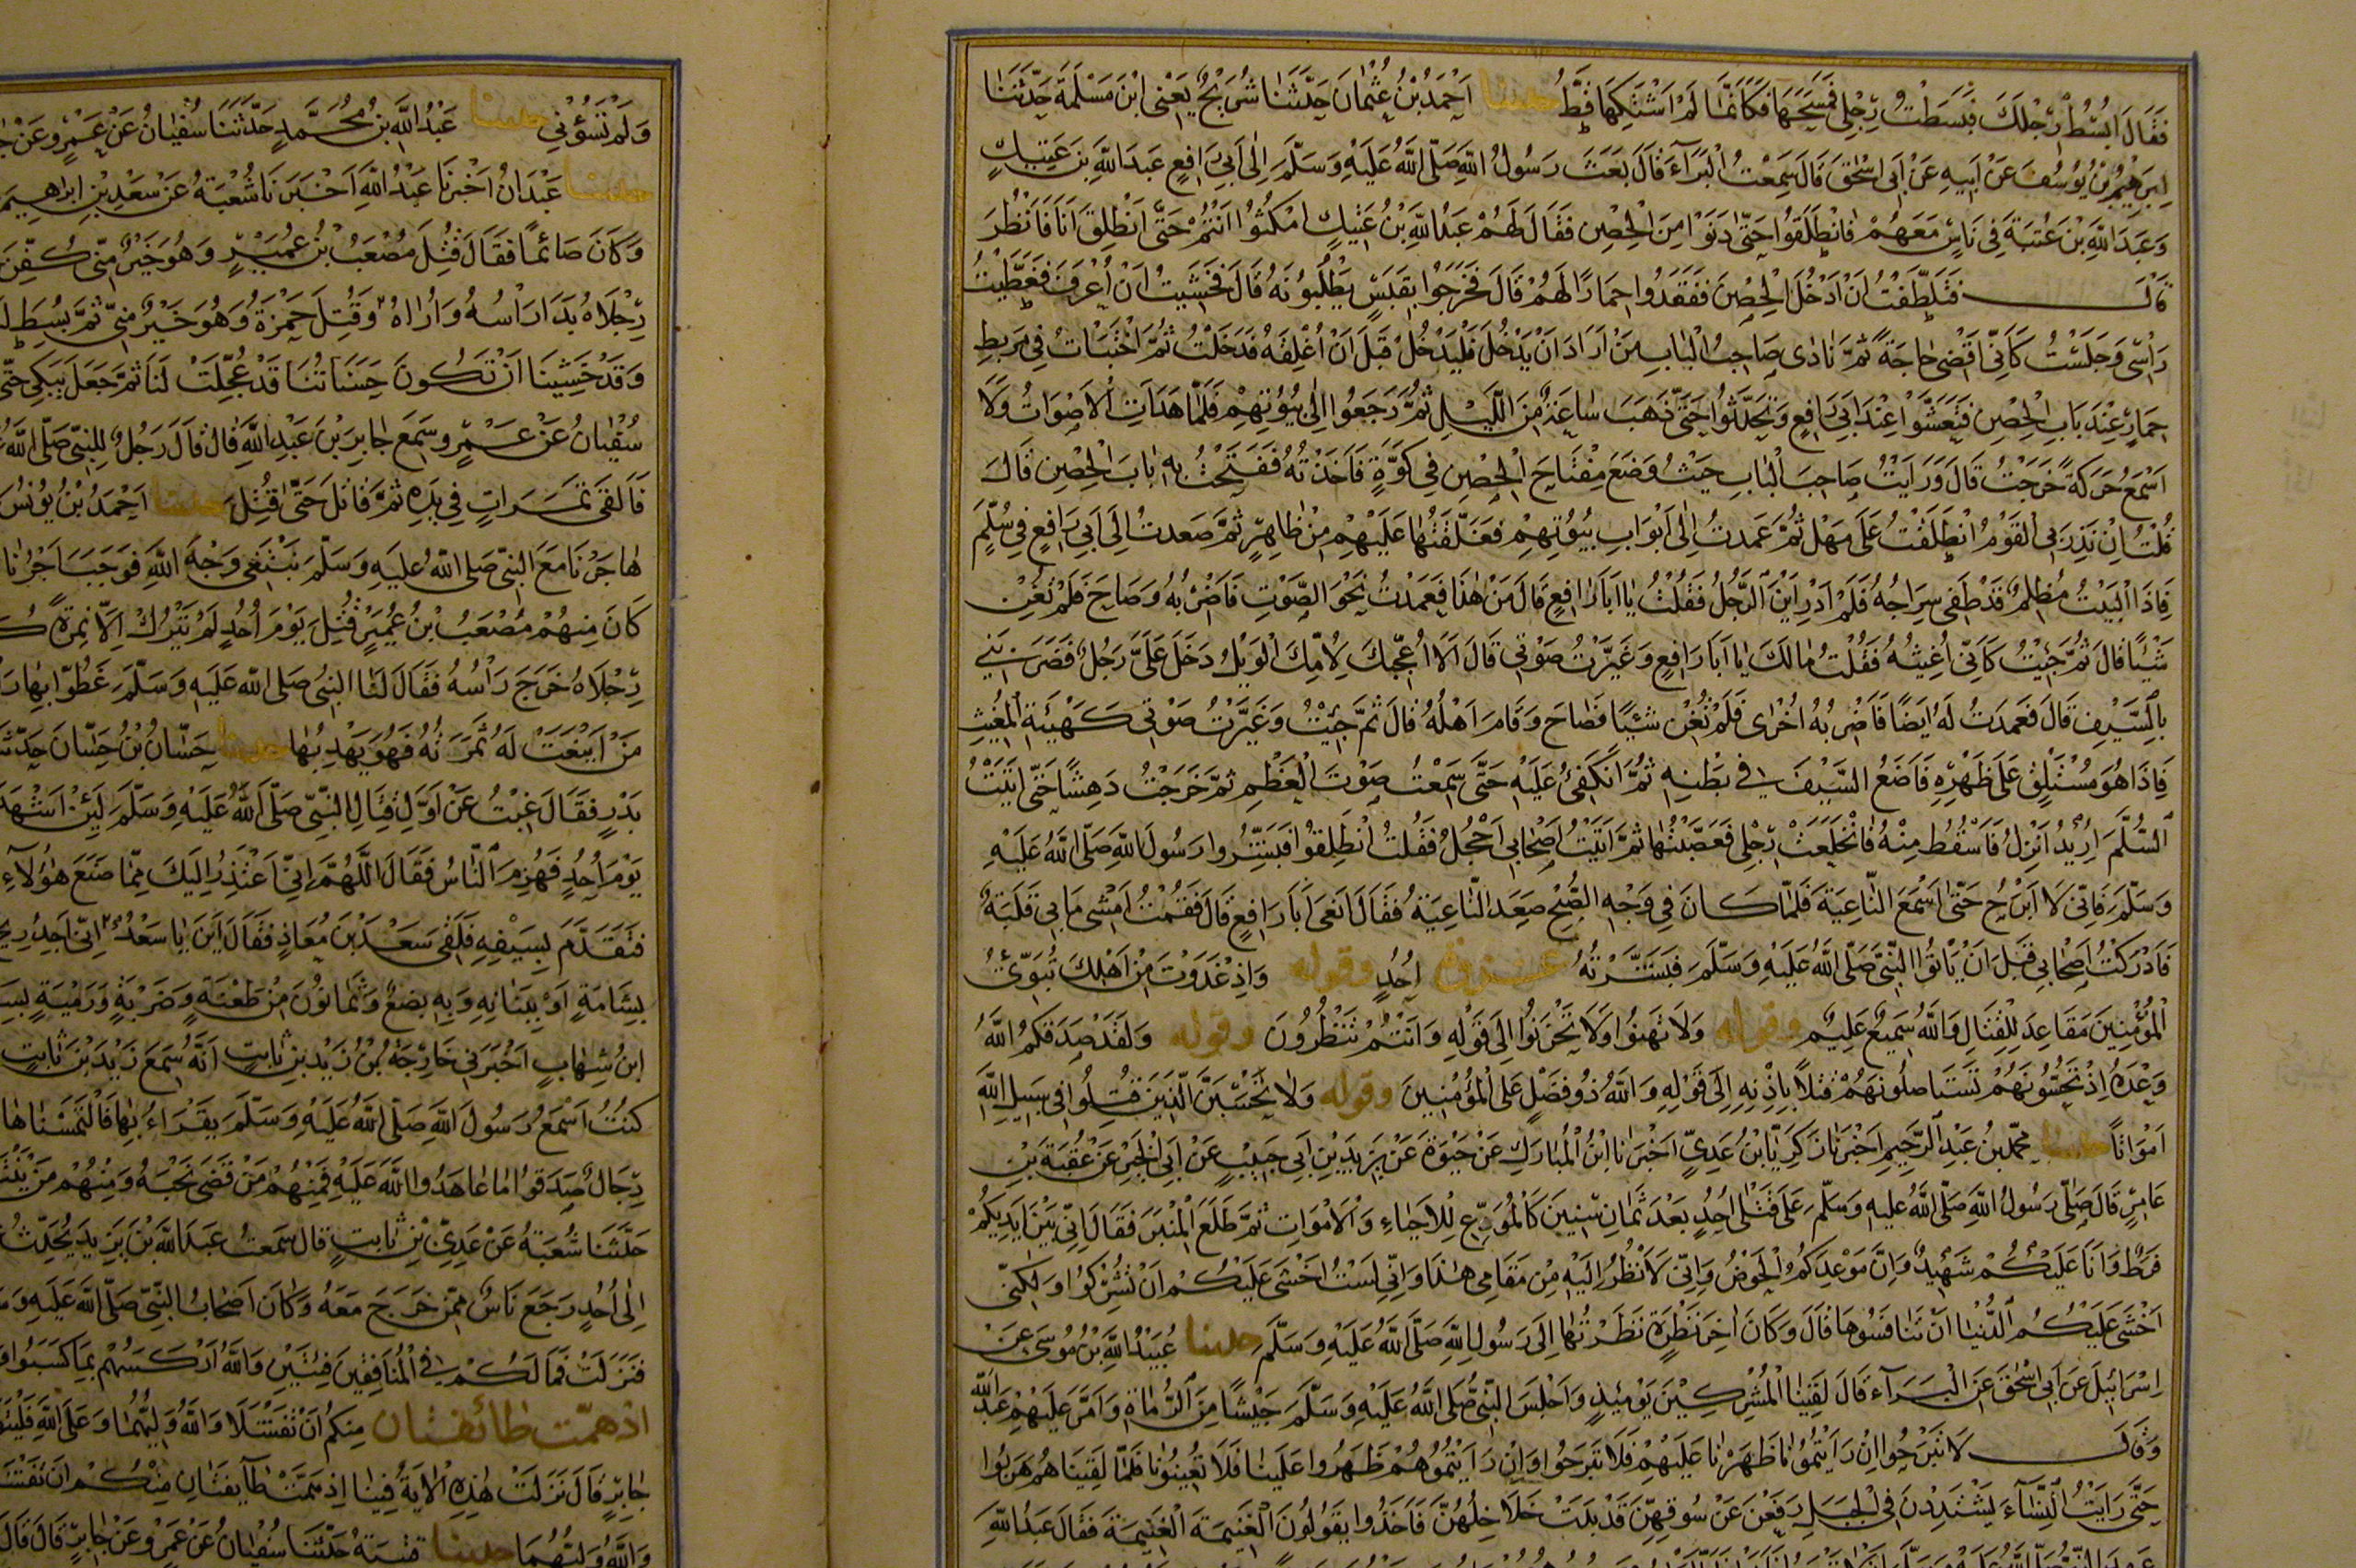 فَقَالَ ابْسُطْ رِجْلَكَ فَبَسَطْتُ رِجْلِي فَمَسَحَهَا فَكَأَنَّمَا لَمْ أَشْتَكِهَا قَطُّ حدثنا أَحْمَدُ بْنُ عُثْمَانَ حَدَّثَنَا شُرَيْحٌ يَعْنِي ابْنَ مَسْلَمَةَ حَدَّثَنَا
إِبْرَهِيمُ بْنُ يُوسُفَ عَنْ أَبِيهِ عَنْ أَبِي إِسْحٰقَ قَالَ سَمِعْتُ الْبَرَآءَ قَالَ بَعَثَ رَسُولُ اللّٰهِ صَلَّى اللّٰهُ عَلَيْهِ وَسَلَّمَ إِلَى أَبِي رَافِعٍ عَبْدَ اللّٰهِ بْنَ عَتِيكٍ
وَعَبْدَ اللّٰهِ بْنَ عُتْبَةَ فِي نَاسٍ مَعَهُمْ فَانْطَلَقُوا حَتَّى دَنَوْا مِنَ الْحِصْنِ فَقَالَ لَهُمْ عَبْدُ اللّٰهِ بْنُ عَتِيكٍ امْكُثُوا أَنْتُمْ حَتَّى أَنْطَلِقَ أَنَا فَأَنْظُرَ
قَالَ فَتَلَطَّفْتُ أَنْ أَدْخُلَ الْحِصْنَ فَفَقَدُوا حِمَارًا لَهُمْ قَالَ فَخَرَجُوا بِقَبَسٍ يَطْلُبُونَهُ قَالَ فَخَشِيتُ أَنْ أُعْرَفَ فَغَطَّيْتُ
رَأْسِي وَجَلَسْتُ كَأَنِّي أَقْضِي حَاجَةً ثُمَّ نَادٰى صَاحِبُ الْبَابِ مَنْ أَرَادَ أَنْ يَدْخُلَ فَلْيَدْخُلْ قَبْلَ أَنْ أُغْلِقَهُ فَدَخَلْتُ ثُمَّ اخْتَبَأْتُ فِي مَرْبِطِ
حِمَارٍ عِنْدَ بَابِ الْحِصْنِ فَتَعَشَّوْا عِنْدَ أَبِي رَافِعٍ وَتَحَدَّثُوا حَتَّى ذَهَبَ سَاعَةٌ مِنَ اللَّيْلِ ثُمَّ رَجَعُوا إِلَى بُيُوتِهِمْ فَلَمَّا هَدَأَتِ الْأَصْوَاتُ وَلَا
أَسْمَعُ حَرَكَةً خَرَجْتُ قَالَ وَرَأَيْتُ صَاحِبَ الْبَابِ حَيْثُ وَضَعَ مِفْتَاحَ الْحِصْنِ فِي كَوَّةٍ فَأَخَذْتُهُ فَفَتَحْتُ بِهِ بَابَ الْحِصْنِ قَالَ
قُلْتُ إِنْ نَذِرَ بِي الْقَوْمُ انْطَلَقْتُ عَلَى مَهْلٍ ثُمَّ عَمَدْتُ إِلَى أَبْوَابِ بُيُوتِهِمْ فَغَلَّقْتُهَا عَلَيْهِمْ مِنْ ظَاهِرٍ ثُمَّ صَعِدْتُ إِلَى أَبِي رَافِعٍ فِي سُلَّمٍ
فَإِذَا الْبَيْتُ مُظْلِمٌ قَدْ طَفِئَ سِرَاجُهُ فَلَمْ أَدْرِ أَيْنَ الرَّجُلُ فَقُلْتُ يَا أَبَا رَافِعٍ قَالَ مَنْ هٰذَا فَعَمَدْتُ نَحْوَ الصَّوْتِ فَأَضْرِبُهُ وَصَاحَ فَلَمْ تُغْنِ
شَيْئًا قَالَ ثُمَّ جِئْتُ كَأَنِّي أُغِيثُهُ فَقُلْتُ مَا لَكَ يَا أَبَا رَافِعٍ وَغَيَّرْتُ صَوْتِي قَالَ أَلَا أُعْجِبُكَ لِأُمِّكَ الْوَيْلُ دَخَلَ عَلَيَّ رَجُلٌ فَضَرَبَنِي
بِالسَّيْفِ قَالَ فَعَمَدْتُ لَهُ أَيْضًا فَأَضْرِبُهُ أُخْرٰى فَلَمْ تُغْنِ شَيْئًا فَصَاحَ وَقَامَ أَهْلُهُ قَالَ ثُمَّ جِئْتُ وَغَيَّرْتُ صَوْتِي كَهَيْئَةِ الْمُغِيثِ
فَإِذَا هُوَ مُسْتَلْقٍ عَلَى ظَهْرِهِ فَأَضَعُ السَّيْفَ فِي بَطْنِهِ ثُمَّ أَنْكَفِئُ عَلَيْهِ حَتَّى سَمِعْتُ صَوْتَ الْعَظْمِ ثُمَّ خَرَجْتُ دَهِشًا حَتَّى أَتَيْتُ
السُّلَّمَ أُرِيدُ أَنْزِلُ فَأَسْقُطُ مِنْهُ فَانْخَلَعَتْ رِجْلِي فَعَصَبْتُهَا ثُمَّ أَتَيْتُ أَصْحَابِي أَحْجُلُ فَقُلْتُ انْطَلِقُوا فَبَشِّرُوا رَسُولَ اللّٰهِ صَلَّى اللّٰهُ عَلَيْهِ
وَسَلَّمَ فَإِنِّي لَا أَبْرَحُ حَتَّى أَسْمَعَ النَّاعِيَةَ فَلَمَّا كَانَ فِي وَجْهِ الصُّبْحِ صَعِدَ النَّاعِيَةُ فَقَالَ أَنْعَى أَبَا رَافِعٍ قَالَ فَقُمْتُ أَمْشِي مَا بِي قَلَبَةٌ
فَأَدْرَكْتُ أَصْحَابِي قَبْلَ أَنْ يَأْتُوا النَّبِيَّ صَلَّى اللّٰهُ عَلَيْهِ وَسَلَّمَ فَبَشَّرْتُهُ غزوة أُحُدٍ وقوله وَإِذْ غَدَوْتَ مِنْ أَهْلِكَ تُبَوِّئُ
الْمُؤْمِنِينَ مَقَاعِدَ لِلْقِتَالِ وَاللّٰهُ سَمِيعٌ عَلِيمٌ وقوله وَلَا تَهِنُوا وَلَا تَحْزَنُوا إِلَى قَوْلِهِ وَأَنْتُمْ تَنْظُرُونَ وقوله وَلَقَدْ صَدَقَكُمُ اللّٰهُ
وَعْدَهُ إِذْ تَحُسُّونَهُمْ تَسْتَأْصِلُونَهُمْ قَتْلًا بِإِذْنِهِ إِلَى قَوْلِهِ وَاللّٰهُ ذُو فَضْلٍ عَلَى الْمُؤْمِنِينَ وقوله وَلَا تَحْسَبَنَّ الَّذِينَ قُتِلُوا فِي سَبِيلِ اللّٰهِ
أَمْوَاتًا حدثنا مُحَمَّدُ بْنُ عَبْدِ الرَّحِيمِ أَخْبَرَنَا زَكَرِيَّا بْنُ عَدِيٍّ أَخْبَرَنَا ابْنُ الْمُبَارَكِ عَنْ حَيْوَةَ عَنْ يَزِيدَ بْنِ أَبِي حَبِيبٍ عَنْ أَبِي الْخَيْرِ عَنْ عُقْبَةَ بْنِ
عَامِرٍ قَالَ صَلَّى رَسُولُ اللّٰهِ صَلَّى اللّٰهُ عَلَيْهِ وَسَلَّمَ عَلَى قَتْلَى أُحُدٍ بَعْدَ ثَمَانِ سِنِينَ كَالْمُوَدِّعِ لِلْأَحْيَاءِ وَالْأَمْوَاتِ ثُمَّ طَلَعَ الْمِنْبَرَ فَقَالَ إِنِّي بَيْنَ أَيْدِيكُمْ
فَرَطٌ وَأَنَا عَلَيْكُمْ شَهِيدٌ وَإِنَّ مَوْعِدَكُمُ الْحَوْضُ وَإِنِّي لَأَنْظُرُ إِلَيْهِ مِنْ مَقَامِي هٰذَا وَإِنِّي لَسْتُ أَخْشَى عَلَيْكُمْ أَنْ تُشْرِكُوا وَلٰكِنِّي
أَخْشَى عَلَيْكُمُ الدُّنْيَا أَنْ تَنَافَسُوهَا قَالَ وَكَانَ آخِرَ نَظْرَةٍ نَظَرْتُهَا إِلَى رَسُولِ اللّٰهِ صَلَّى اللّٰهُ عَلَيْهِ وَسَلَّمَ حدثنا عُبَيْدُ اللّٰهِ بْنُ مُوسَى عَنْ
إِسْرَائِيلَ عَنْ أَبِي إِسْحٰقَ عَنِ الْبَرَآءِ قَالَ لَقِينَا الْمُشْرِكِينَ يَوْمَئِذٍ وَأَجْلَسَ النَّبِيُّ صَلَّى اللّٰهُ عَلَيْهِ وَسَلَّمَ جَيْشًا مِنَ الرُّمَاةِ وَأَمَّرَ عَلَيْهِمْ عَبْدَ اللّٰهِ
وَقَالَ لَا تَبْرَحُوا إِنْ رَأَيْتُمُونَا ظَهَرْنَا عَلَيْهِمْ فَلَا تَبْرَحُوا وَإِنْ رَأَيْتُمُوهُمْ ظَهَرُوا عَلَيْنَا فَلَا تُعِينُونَا فَلَمَّا لَقِينَا هُمْ هَرَبُوا
حَتَّى رَأَيْتُ النِّسَآءَ يَشْتَدِدْنَ فِي الْجَبَلِ رَفَعْنَ عَنْ سُوقِهِنَّ قَدْ بَدَتْ خَلَاخِلُهُنَّ فَأَخَذُوا يَقُولُونَ الْغَنِيمَةَ الْغَنِيمَةَ فَقَالَ عَبْدُ اللّٰهِ
وَلَمْ تَسُؤْنِي حدثنا عَبْدُ اللّٰهِ بْنُ مُحَمَّدٍ حَدَّثَنَا سُفْيَانُ عَنْ عَمْرٍو عَنْ
حدثنا عَبْدَانُ أَخْبَرَنَا عَبْدُ اللّٰهِ أَخْبَرَنَا شُعْبَةُ عَنْ سَعْدِ بْنِ إِبْرَاهِيمَ
وَكَانَ صَائِمًا فَقَالَ قُتِلَ مُصْعَبُ بْنُ عُمَيْرٍ وَهُوَ خَيْرٌ مِنِّي كُفِّنَ
رِجْلَاهُ بَدَا رَأْسُهُ وَأُرَاهُ وَقُتِلَ حَمْزَةُ وَهُوَ خَيْرٌ مِنِّي ثُمَّ بُسِطَ
وَقَدْ خَشِينَا أَنْ تَكُونَ حَسَنَاتُنَا قَدْ عُجِّلَتْ لَنَا ثُمَّ جَعَلَ يَبْكِي حَتَّى
سُفْيَانُ عَنْ عَمْرٍو سَمِعَ جَابِرَ بْنَ عَبْدِ اللّٰهِ قَالَ قَالَ رَجُلٌ لِلنَّبِيِّ صَلَّى اللّٰهُ
فَأَلْقَى تَمَرَاتٍ فِي يَدِهِ ثُمَّ قَاتَلَ حَتَّى قُتِلَ حدثنا أَحْمَدُ بْنُ يُونُسَ
هَاجَرْنَا مَعَ النَّبِيِّ صَلَّى اللّٰهُ عَلَيْهِ وَسَلَّمَ نَبْتَغِي وَجْهَ اللّٰهِ فَوَجَبَ أَجْرُنَا
كَانَ مِنْهُمْ مُصْعَبُ بْنُ عُمَيْرٍ قُتِلَ يَوْمَ أُحُدٍ لَمْ يَتْرُكْ إِلَّا نَمِرَةً
رِجْلَاهُ خَرَجَ رَأْسُهُ فَقَالَ لَنَا النَّبِيُّ صَلَّى اللّٰهُ عَلَيْهِ وَسَلَّمَ غَطُّوا بِهَا
مَنْ أَيْنَعَتْ لَهُ ثَمَرَتُهُ فَهُوَ يَهْدِبُهَا حدثنا حَسَّانُ بْنُ حَسَّانَ
بَدْرٍ فَقَالَ غِبْتُ عَنْ أَوَّلِ قِتَالِ النَّبِيِّ صَلَّى اللّٰهُ عَلَيْهِ وَسَلَّمَ لَئِنْ
يَوْمَ أُحُدٍ فَهُزِمَ النَّاسُ فَقَالَ اللَّهُمَّ إِنِّي أَعْتَذِرُ إِلَيْكَ مِمَّا صَنَعَ هٰؤُلَآءِ
فَتَقَدَّمَ بِسَيْفِهِ فَلَقِيَ سَعْدَ بْنَ مُعَاذٍ فَقَالَ أَيْنَ يَا سَعْدُ إِنِّي أَجِدُ
بِشَامَةٍ أَوْ بِبَنَانِهِ وَبِهِ بِضْعٌ وَثَمَانُونَ مِنْ طَعْنَةٍ وَضَرْبَةٍ وَرَمْيَةٍ
ابْنُ شِهَابٍ أَخْبَرَنِي خَارِجَةُ بْنُ زَيْدِ بْنِ ثَابِتٍ أَنَّهُ سَمِعَ زَيْدَ بْنَ ثَابِتٍ
كُنْتُ أَسْمَعُ رَسُولَ اللّٰهِ صَلَّى اللّٰهُ عَلَيْهِ وَسَلَّمَ يَقْرَأُ بِهَا فَالْتَمَسْنَاهَا
رِجَالٌ صَدَقُوا مَا عَاهَدُوا اللّٰهَ عَلَيْهِ فَمِنْهُمْ مَنْ قَضَى نَحْبَهُ وَمِنْهُمْ مَنْ
حَدَّثَنَا شُعْبَةُ عَنْ عَدِيِّ بْنِ ثَابِتٍ قَالَ سَمِعْتُ عَبْدَ اللّٰهِ بْنَ يَزِيدَ يُحَدِّثُ
إِلَى أُحُدٍ رَجَعَ نَاسٌ مِمَّنْ خَرَجَ مَعَهُ وَكَانَ أَصْحَابُ النَّبِيِّ صَلَّى اللّٰهُ عَلَيْهِ
فَنَزَلَتْ فَمَا لَكُمْ فِي الْمُنَافِقِينَ فِئَتَيْنِ وَاللّٰهُ أَرْكَسَهُمْ بِمَا كَسَبُوا
اذ همّت طائفتان مِنْكُمْ أَنْ تَفْشَلَا وَاللّٰهُ وَلِيُّهُمَا وَعَلَى اللّٰهِ
جَابِرٍ قَالَ نَزَلَتْ هٰذِهِ الْآيَةُ فِينَا إِذْ هَمَّتْ طَآئِفَتَانِ مِنْكُمْ أَنْ
وَاللّٰهُ وَلِيُّهُمَا حدثنا قُتَيْبَةُ حَدَّثَنَا سُفْيَانُ عَنْ عَمْرٍو عَنْ جَابِرٍ قَالَ قَالَ